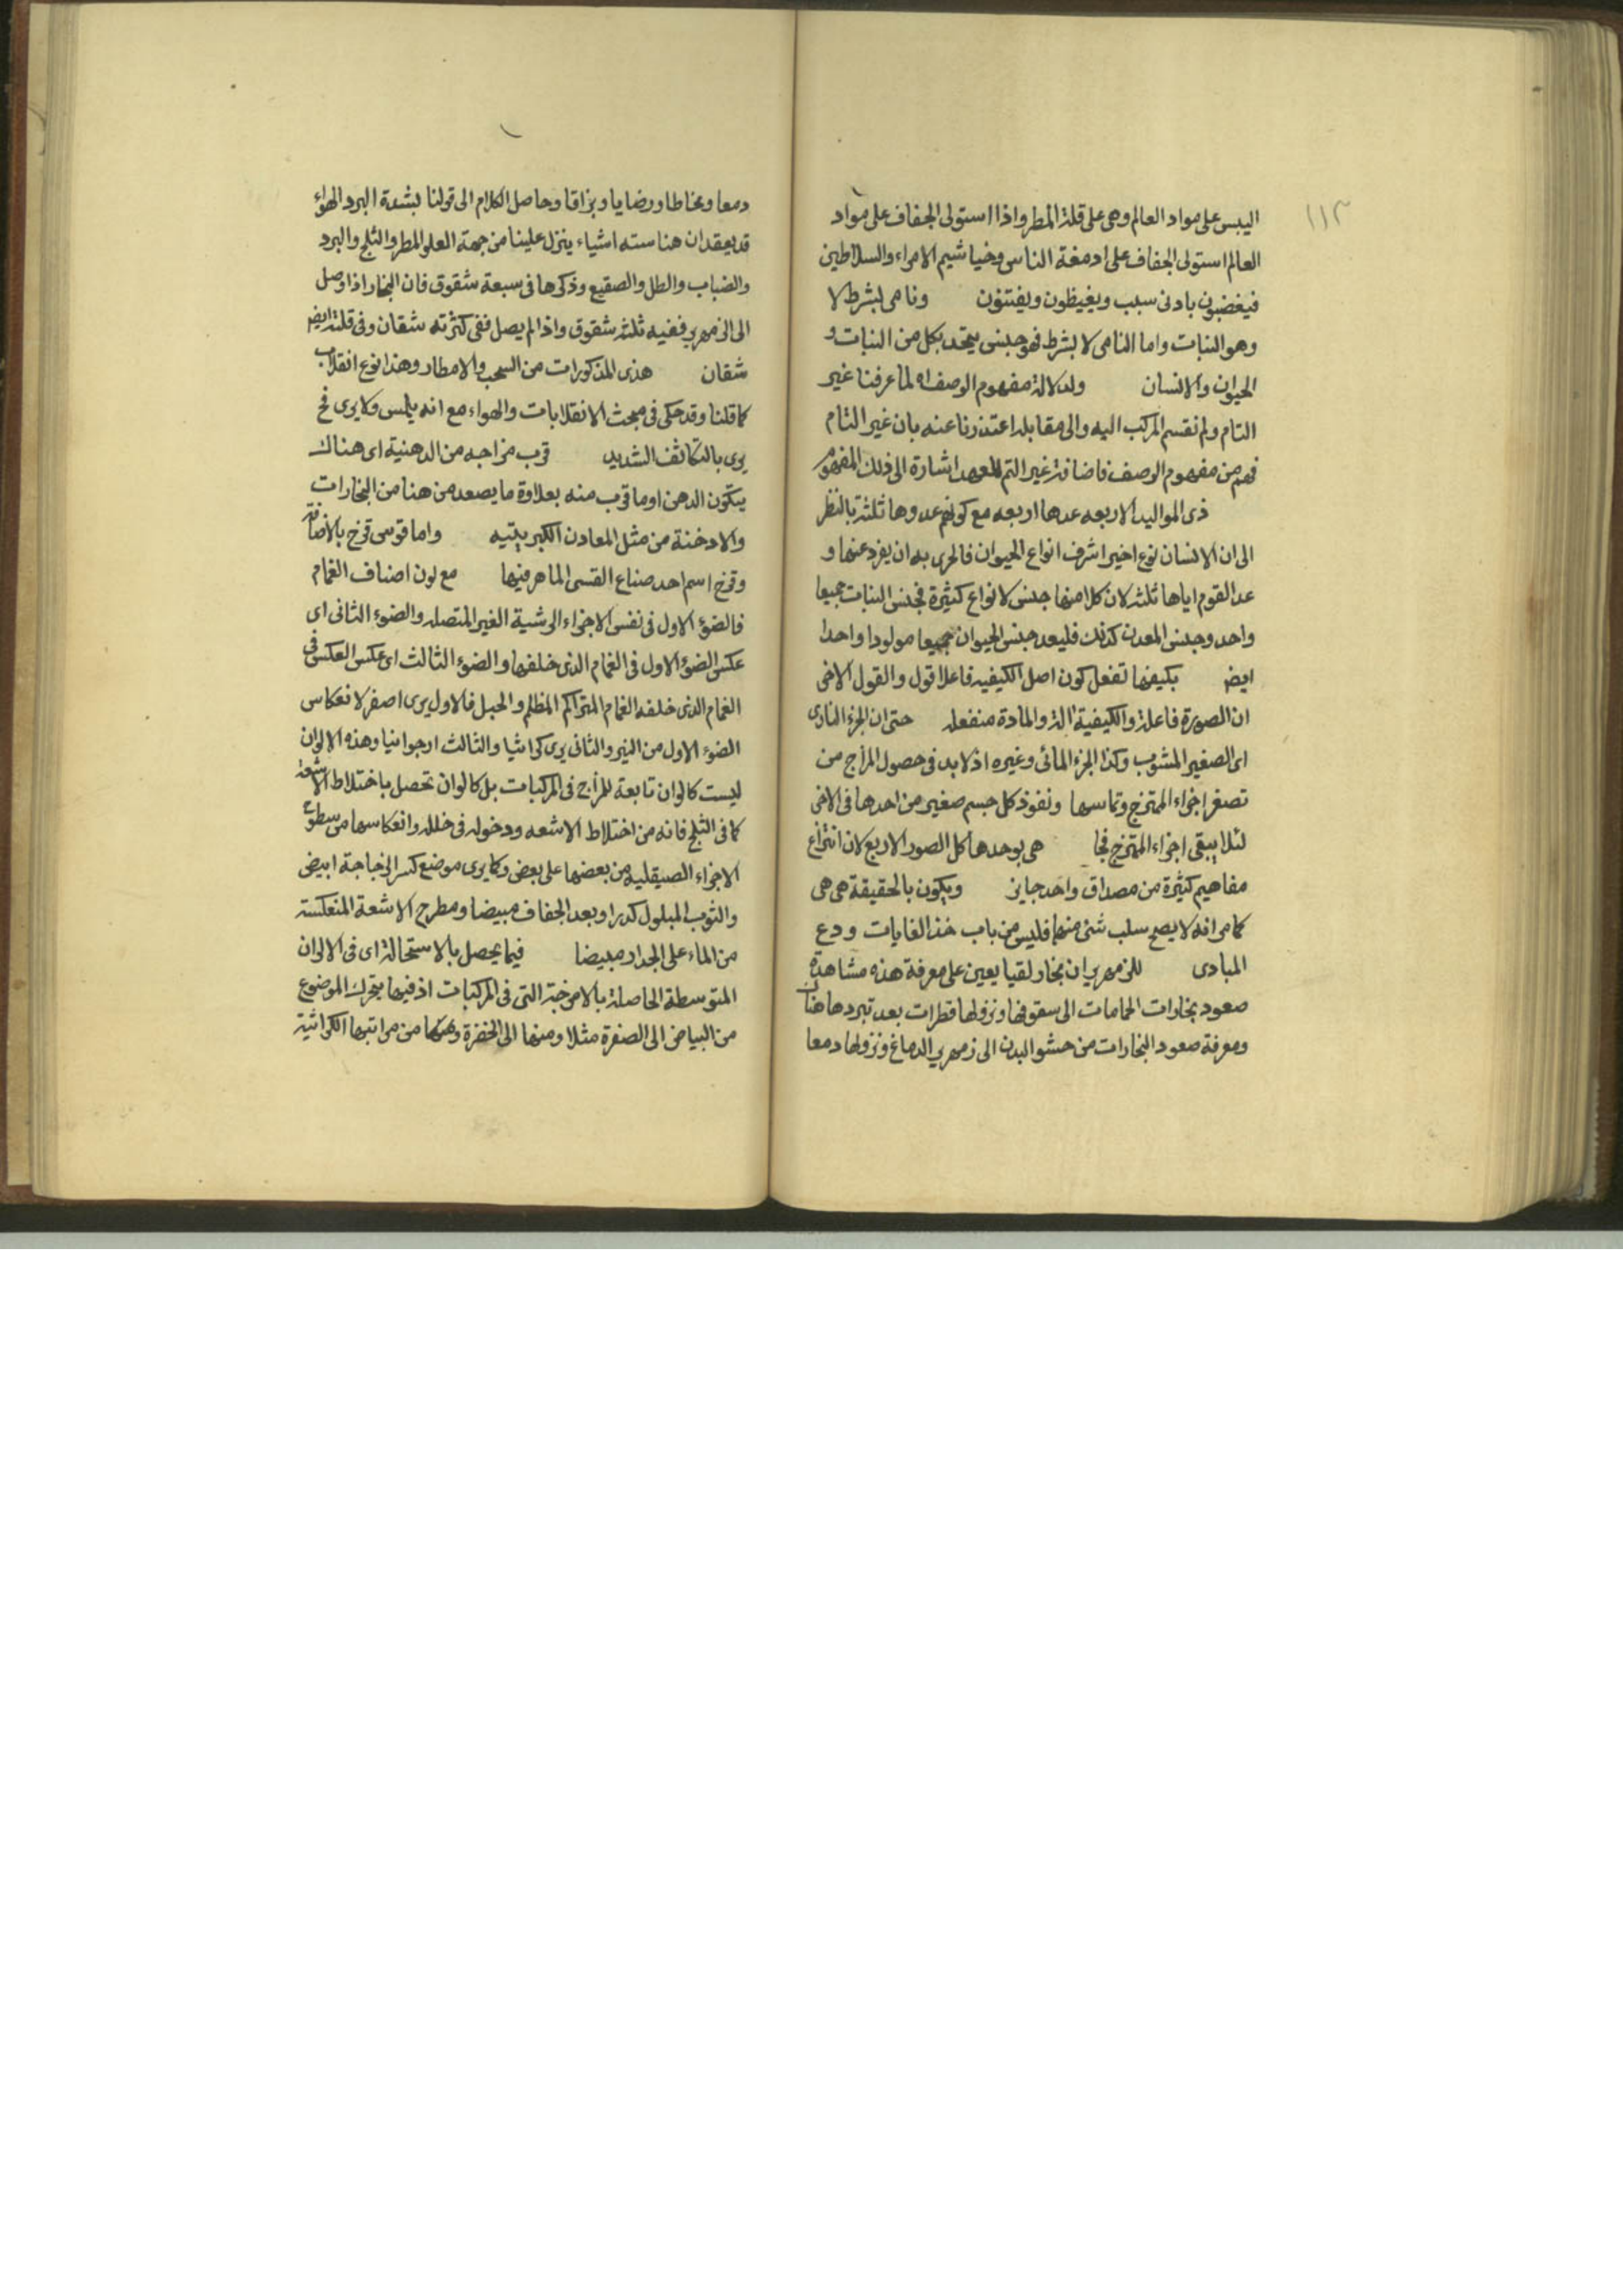 ١١٣
اليبس على مواد العالم وهى على قلة المطر واذا استولى الجفاف على مواد
العالم استولى الجفاف على ادمغة الناس وخياشيم الامراء والسلاطين
فيغضبون بادنى سبب ويغيظون ويفتنون ونامى بشرط لا
وهو النبات واما النامى لا بشرط فهو جنس يتحد بكل من النبات و
الحيوان والانسان ولدلالة مفهوم الوصف اه لما عرفنا غير
التام ولم نقسم المركب اليه والى مقابله اعتذرنا عنه بان غير التام
فهم من مفهوم الوصف فاضافة غير التم للعهد اشارة الى ذلك المفهوم
ذى المواليد الاربعه عدها اربعه مع كونهم عدوها ثلثة بالنظر
الى ان الانسان نوع اخير اشرف انواع الحيوان فالحرى به ان يفرد عنها و
عد القوم اياها ثلثه لان كلا منها جنس لانواع كثيرة فجنس النبات جميعا
واحد وجنس المعدن كذلك فليعد جنس الحيوان جميعا مولودا واحدا
ايض بكيفها تفعل كون اصل الكيفيه فاعلا قول والقول الاخر
ان الصورة فاعلة والكيفية آلة والمادة منفعله حتى ان الجزء النارى
اى الصغير المشوب وكذا الجزء المائى وغيره اذ لا بد فى حصول المزاج من
تصغر اجزاء الممتزج وتماسها ونفوذ كل جسم صغير من احدها فى الاخر
لئلا يبقى اجزاء الممتزج فجا هى بوحدها كل الصور الاربع لان انتزاع
مفاهيم كثيرة من مصداق واحد جايز ويكون بالحقيقة هى هى
كما مر انه لا يصح سلب شئ منها فليس من باب خذ الغايات ودع
المبادى للزمهرير ان بخار لقيا يعين على معرفة هذه مشاهدة
صعود بخارات الحمامات الى سقوفها ونزولها قطرات بعد تبردها هناك
ومعرفة صعود البخارات من حشو البدن الى زمهرير الدماغ ونزولها دمعا
دمعا ومخاطا ورضابا وبزاقا وحاصل الكلام الى قولنا بشدة البرد الهواء
قد يعقد ان هنا سته اشياء ينزل علينا من جهة العلو المطر والثلج والبرد
والضباب والطل والصقيع وذكرها فى سبعة شقوق فان البخار اذا وصل
الى الزمهرير ففيه ثلثه شقوق واذا لم يصل ففى كثرته شقان وفى قلته ايض
شقان هذى المذكورات من السحب والامطار وهذا نوع انقلاب
كما قلنا وقد حكى فى مبحث الانقلابات والهواء مع انه يلمس ولا يرى فح
يرى بالتكاثف الشديد قرب مزاجه من الدهنية اى هناك
يتكون الدهن او ما قرب منه بعلاوة ما يصعد من هنا من البخارات
والادخنة من مثل المعادن الكبريتيه واما قوس قزح بالاضافة
وقزح اسم احد صناع القسى الماهر فيها مع لون اصناف الغمام
فالضوء الاول فى نفس الاجزاء الرشية الغير المتصله والضوء الثانى اى
عكس الضوء الاول فى الغمام الذى خلفها والضوء الثالث اى عكس العكس فى
الغمام الذى خلفه الغمام المتراكم المظلم والجبل فالاول يرى اصفر لانعكاس
الضوء الاول من النير والثانى يرى كراثيا والثالث ارجوانيا وهذه الالوان
ليست كالوان تابعة للمزاج فى المركبات بل كالوان تحصل باختلاط الاشعة
كما فى الثلج فانه من اختلاط الاشعه ودخوله فى خلله وانعكاسها من سطوح
الاجزاء الصيقليه من بعضها على بعض وكما يرى موضع كسر الزجاجة ابيض
والثوب المبلول كدرا وبعد الجفاف مبيضا ومطرح الاشعة المنعكسة
من الماء على الجدار مبيضا فيما يحصل بالاستحالة اى فى الالوان
المتوسطة الحاصلة بالامزجة التى فى المركبات اذ فيها يتحرك الموضوع
من البياض الى الصفرة مثلا ومنها الى الخضرة وهكذا من مراتبها الكراثية